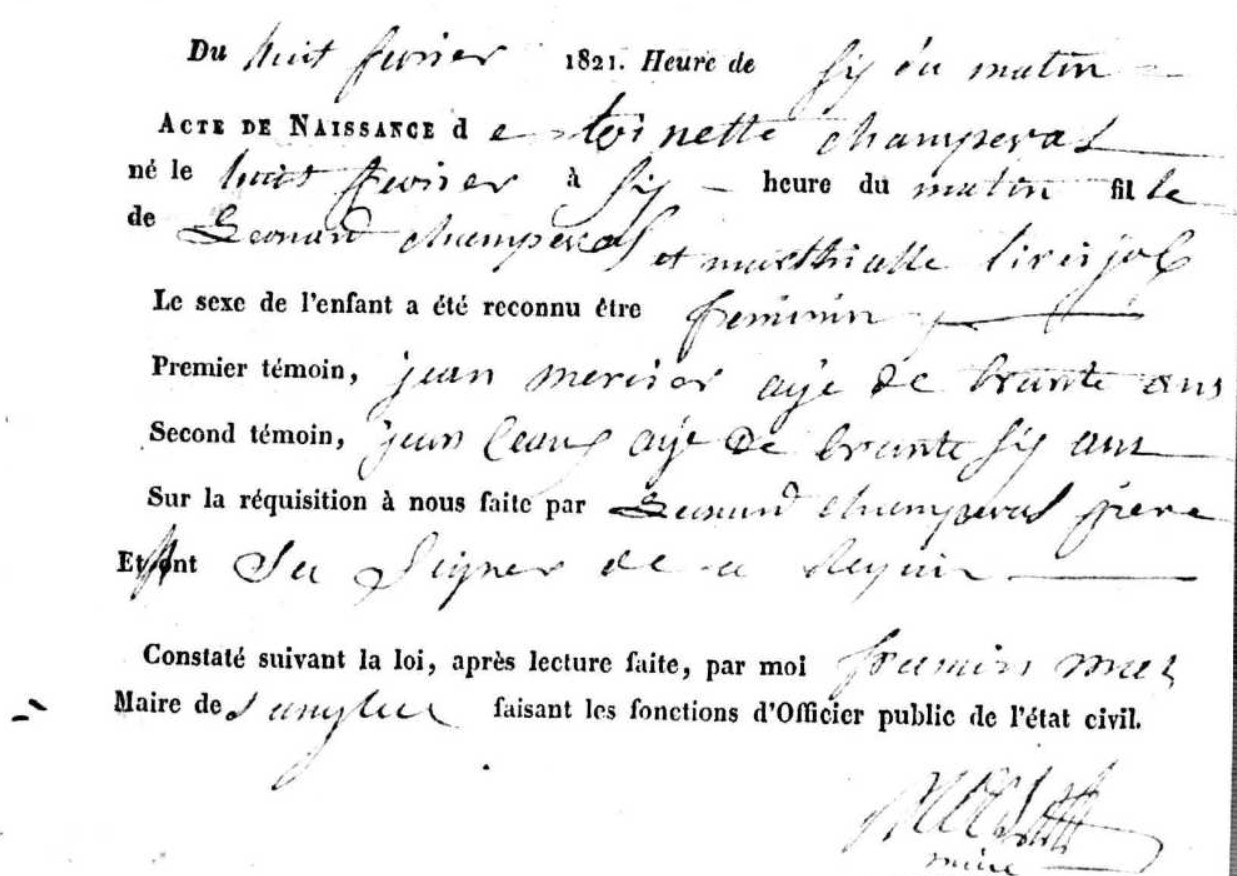 Du huit fevrier 1821. Heure de sis du matin
ACTE DE NAISSANCE d e toinette champeras
né le huit fevrier à sis heure du matin fil le
de Leonard champeras et marthialle
Le sexe de l'enfant a été reconnu être feminin
Premier témoin, jean mercier aije de trante ans
Second témoin, jean aije de trante sis ans
Sur la réquisition à nous faite par Leonard champeras pere
Et ont Su Signer de ce
Constaté suivant la loi, après lecture faite, par moi
Maire de faisant les fonctions d'Officier public de l'état civil.